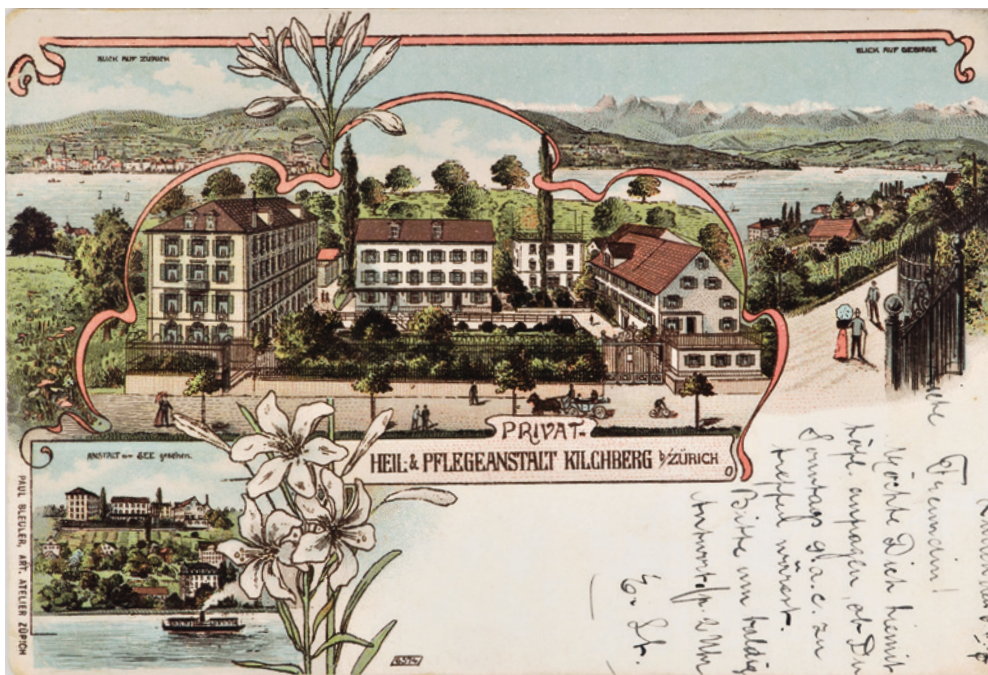 BLICK AUF ZÜRICH
BLICK AUF GEBIRGE
PRIVAT-
HEIL- & PFLEGEANSTALT KILCHBERG b/ ZÜRICH
ANSTALT vom SEE gesehen.
PAUL BLEULER, ART. ATELIER ZÜRICH
6574
Freundin!
Möchte Dich hiemit
höfl. anfragen, ob Du
Sonntags d. a. c. zu
treffen wärest.
Bitte um baldig
Antwort
E. St.